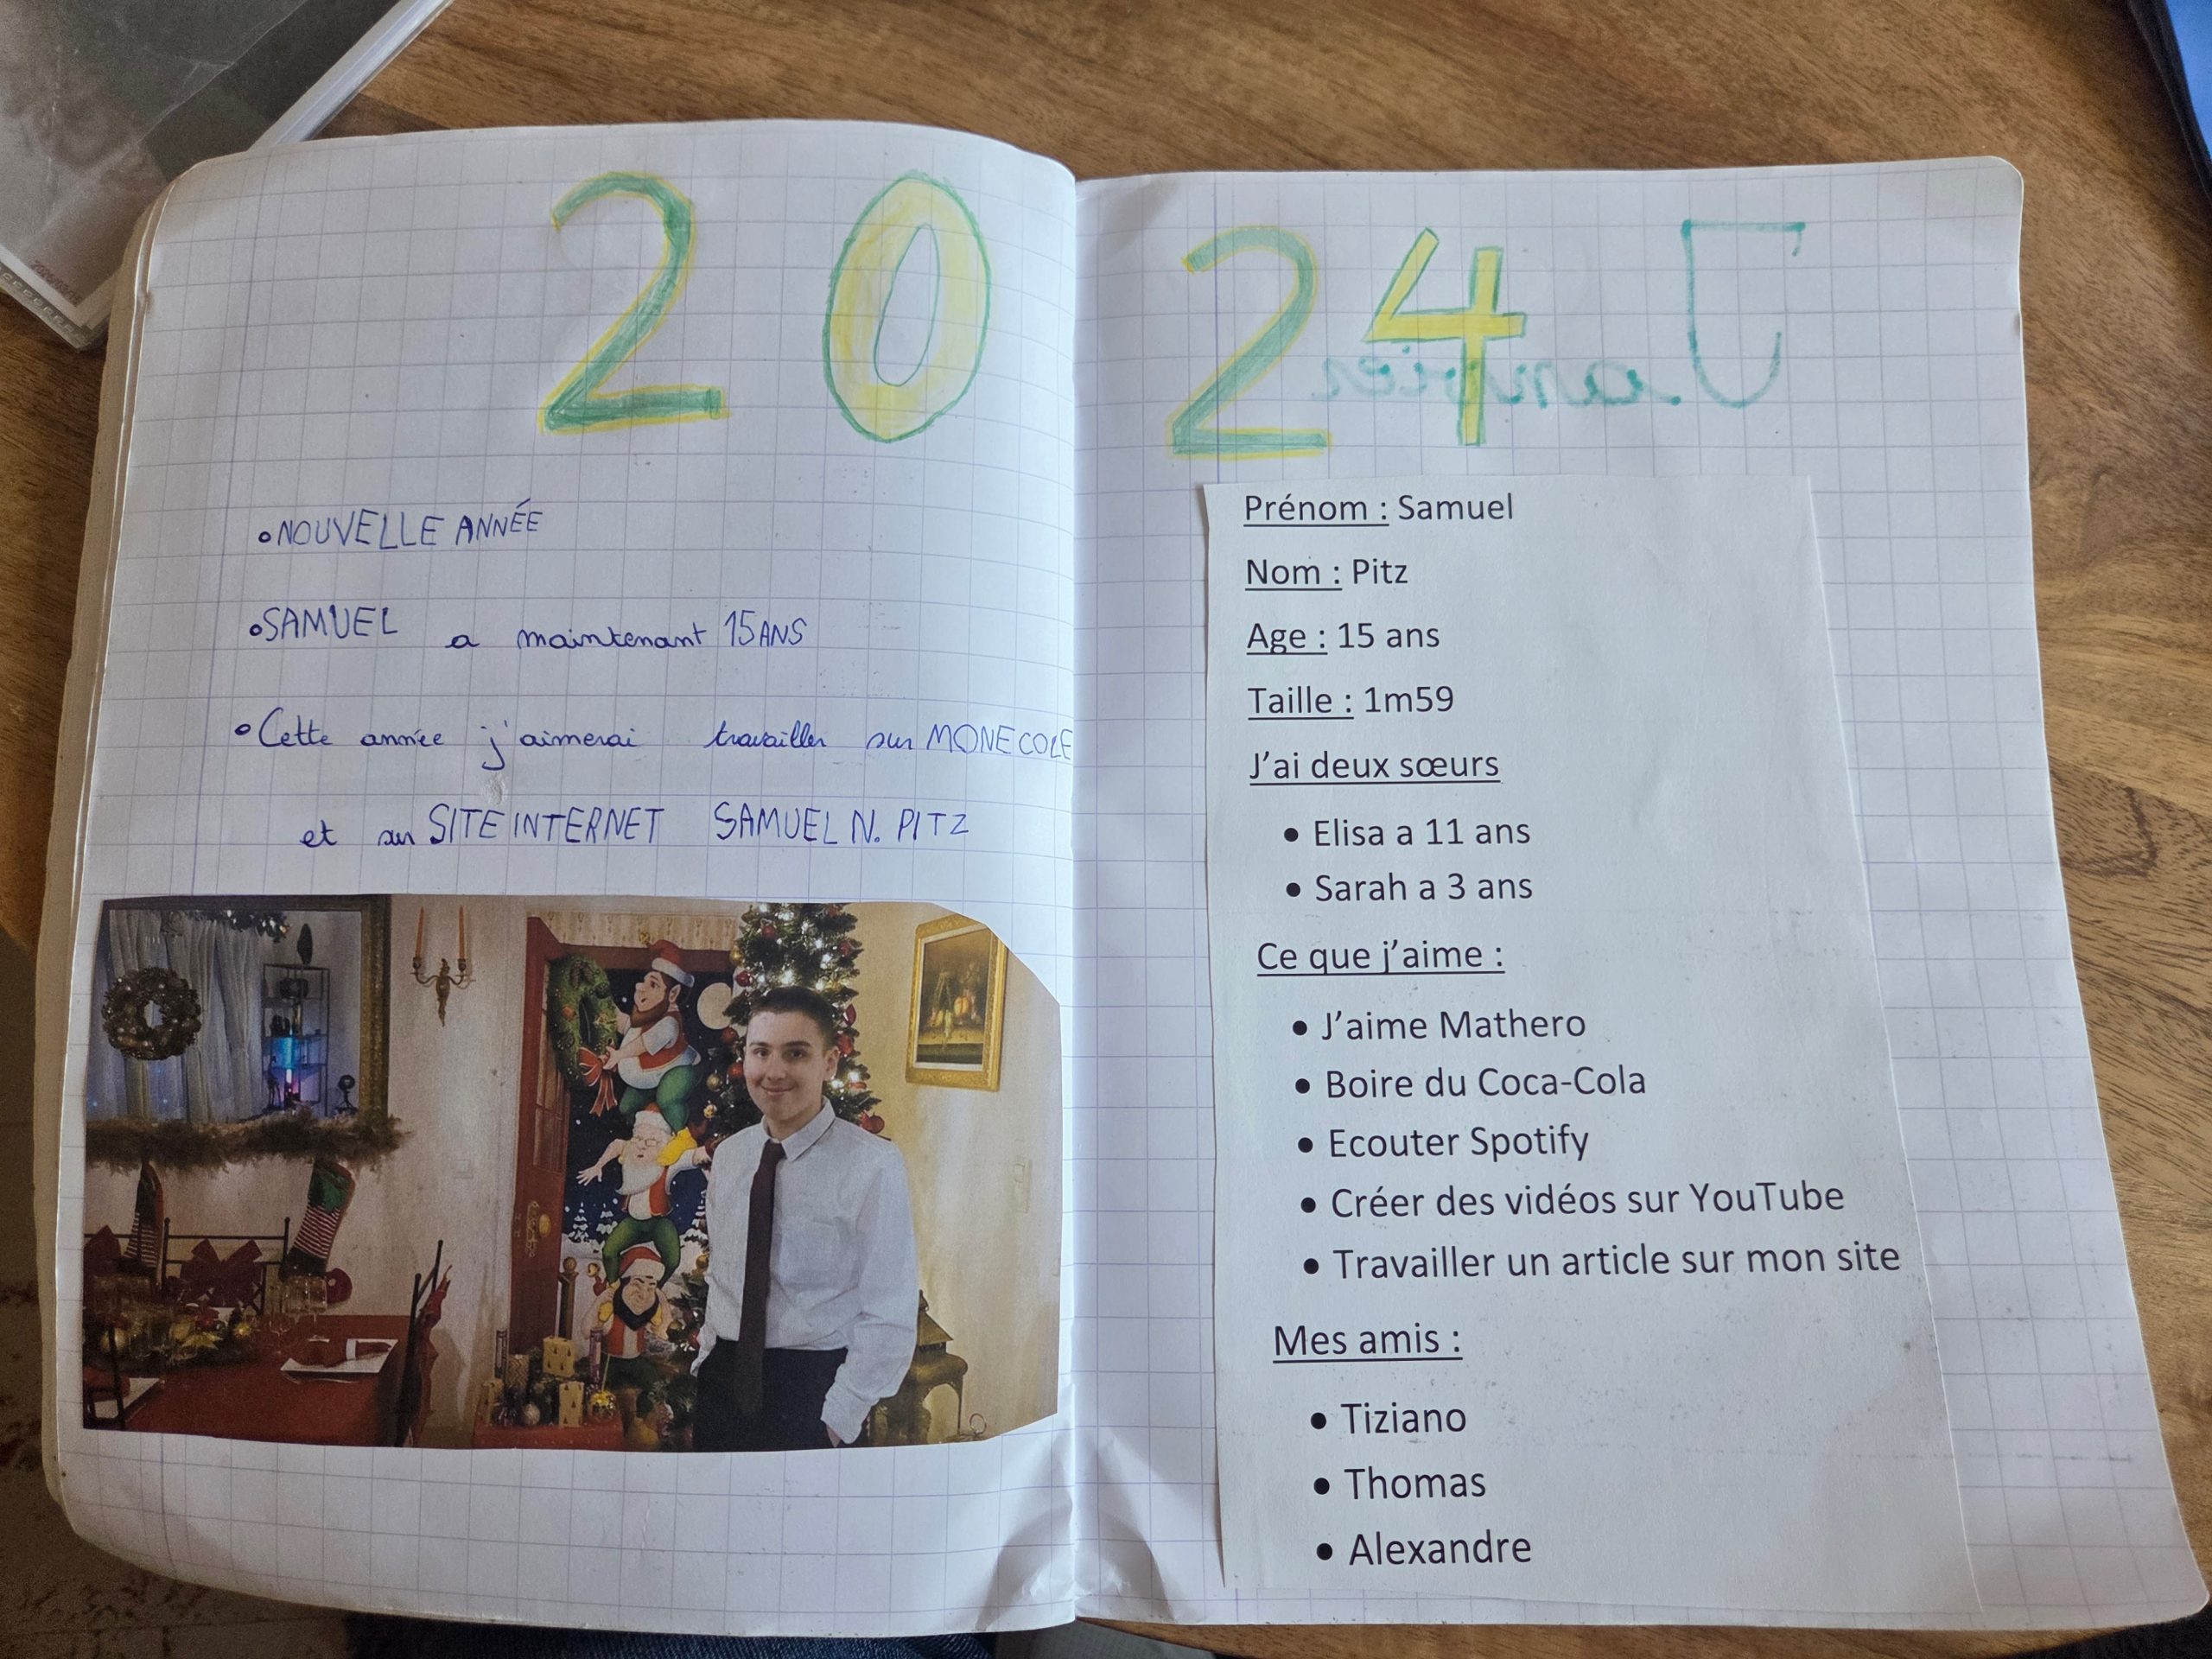 20
• NOUVELLE ANNÉE
• SAMUEL a maintenant 15 ANS
• Cette année j'aimerai travailler sur MONECOLE
et sur SITE INTERNET SAMUEL N. PITZ
24
Janvier
Prénom : Samuel
Nom : Pitz
Age : 15 ans
Taille : 1m59
J'ai deux sœurs
• Elisa a 11 ans
• Sarah a 3 ans
Ce que j'aime :
• J'aime Mathero
• Boire du Coca-Cola
• Ecouter Spotify
• Créer des vidéos sur YouTube
• Travailler un article sur mon site
Mes amis :
• Tiziano
• Thomas
• Alexandre